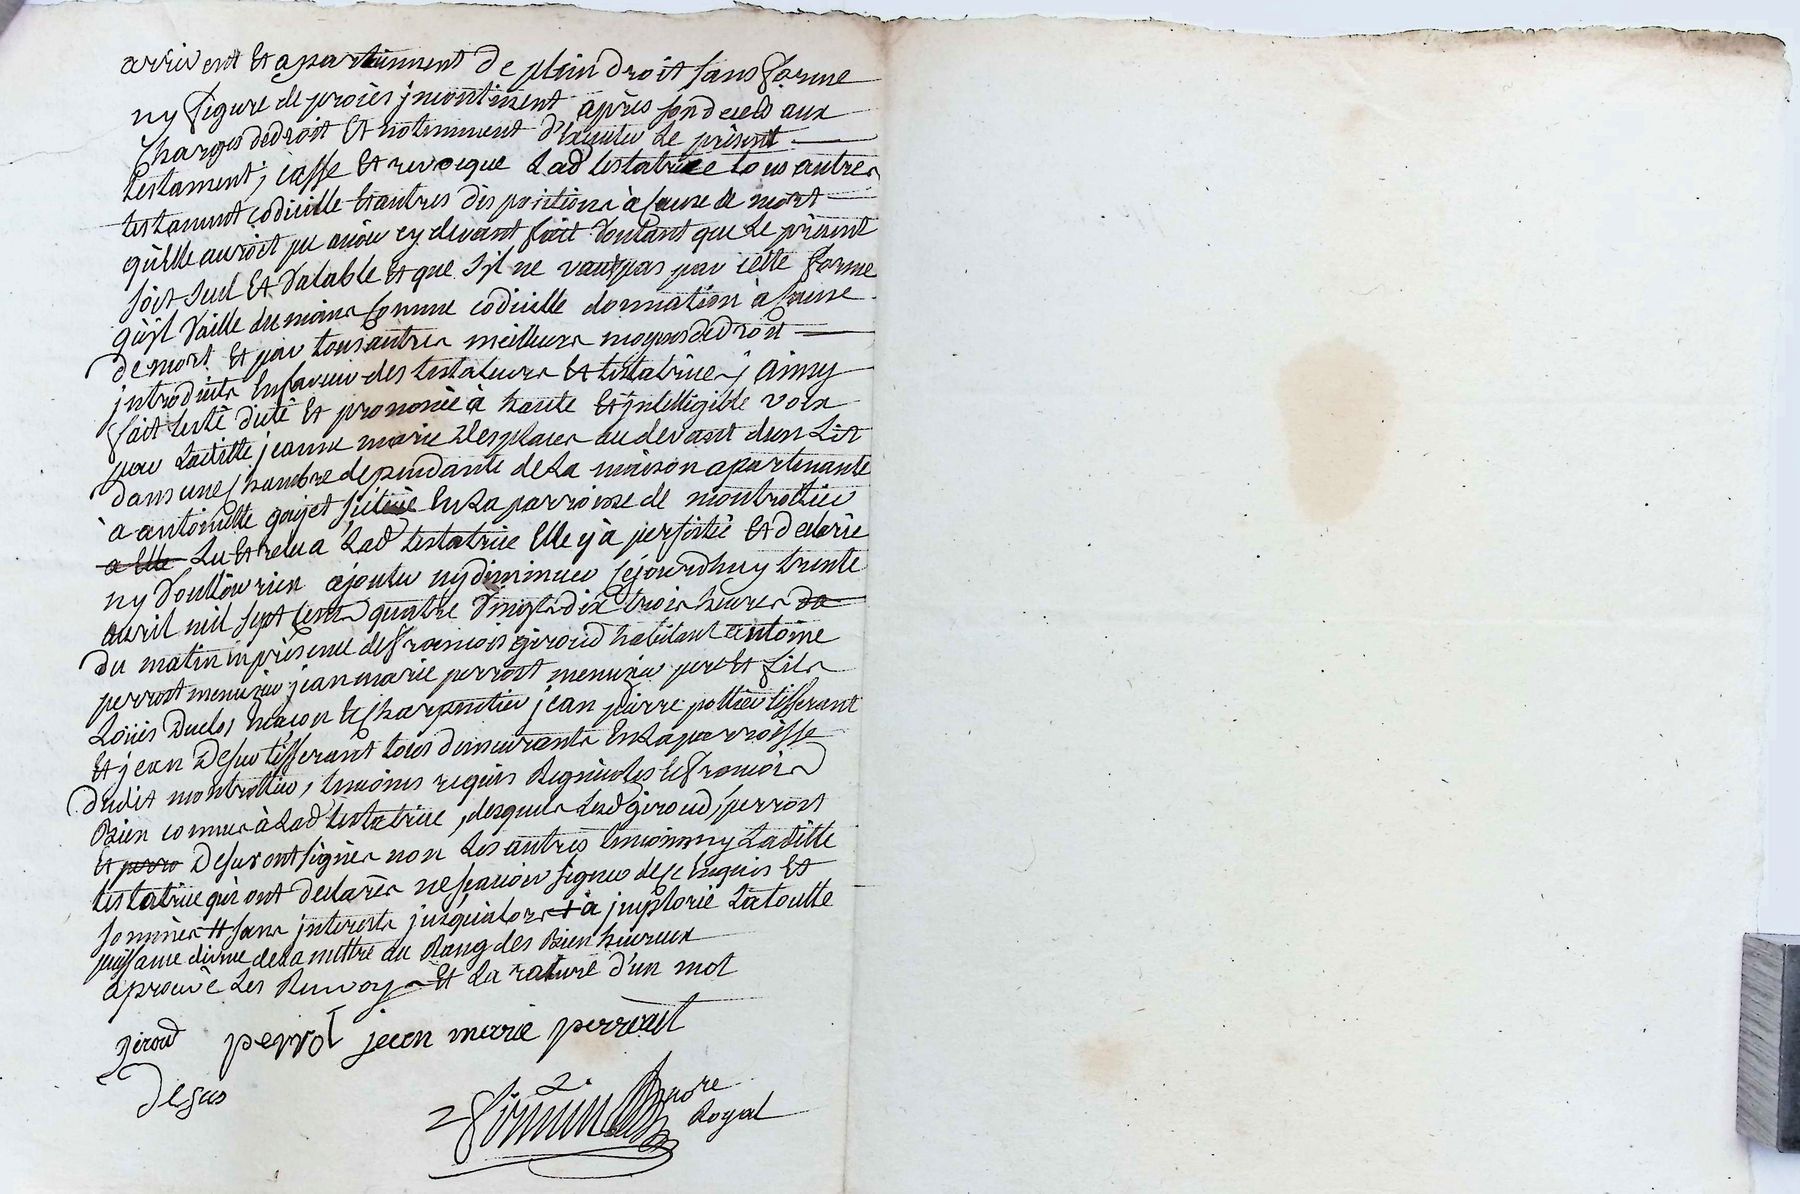 arrivent et apartiennent de plein droit sans forme
ny figure de procès jncontinent après son deced aux
Charges de droit et notemment d'Exécuter Le présent
testament, casse et revoque Lad testatrice tous autres
testament codicille et autres dispositions à Cause de mort
qu'elle auroit pu avoir cy devant fait voulant que Le présent
soit seul et valable et que s'il ne vaut pas par cette forme
qu'jl vaille du moins Comme codicille donnation à Cause
de mort et par tous autres meilleurs moyens de droit
jntroduits En faveur des testateurs et testatrices j ainsy
fait testé dicté et prononcé à haute et jntelligible voix
par Laditte jeanne marie Desplaces au devant d'un Lit
dans une Chambre dependante de La maison apartenante
à antoinette goujet scituée En La parroisse de montrottier
a Elle Lu et relu a Lad testatrice Elle y à persisté et declarée
ny vouloir rien ajouter ny diminuer Cejourdhuy trente
avril mil sept Cents quatre vingts dix trois heures de
du matin en présence de françois giroud habitant antoine
perrost menuzier jean marie perrost menuzier pere et fils
Loüis Duclos maçon et Charpentier jean pierre pottier tisserant
Et jean Desus tisserant tous demeurants En La parroisse
dudit montrottier, temoins requis Regnicoles et françois
Bien connus à Lad testatrice, desquels Lesd giroud, perrost
et perro Desus ont signés non Les autres temoins ny Laditte
testatrice qui ont declarés ne sçavoir signer de ce Enquis et
sommés # sans jnterests jusqu'alors + à jmplorié La toutte
puissance divine de La mettre au Rang des Bien heureux
aprouvé Les Renvoys et La rature d'un mot
giroud perrot jean marie perroait
Desus
Royal